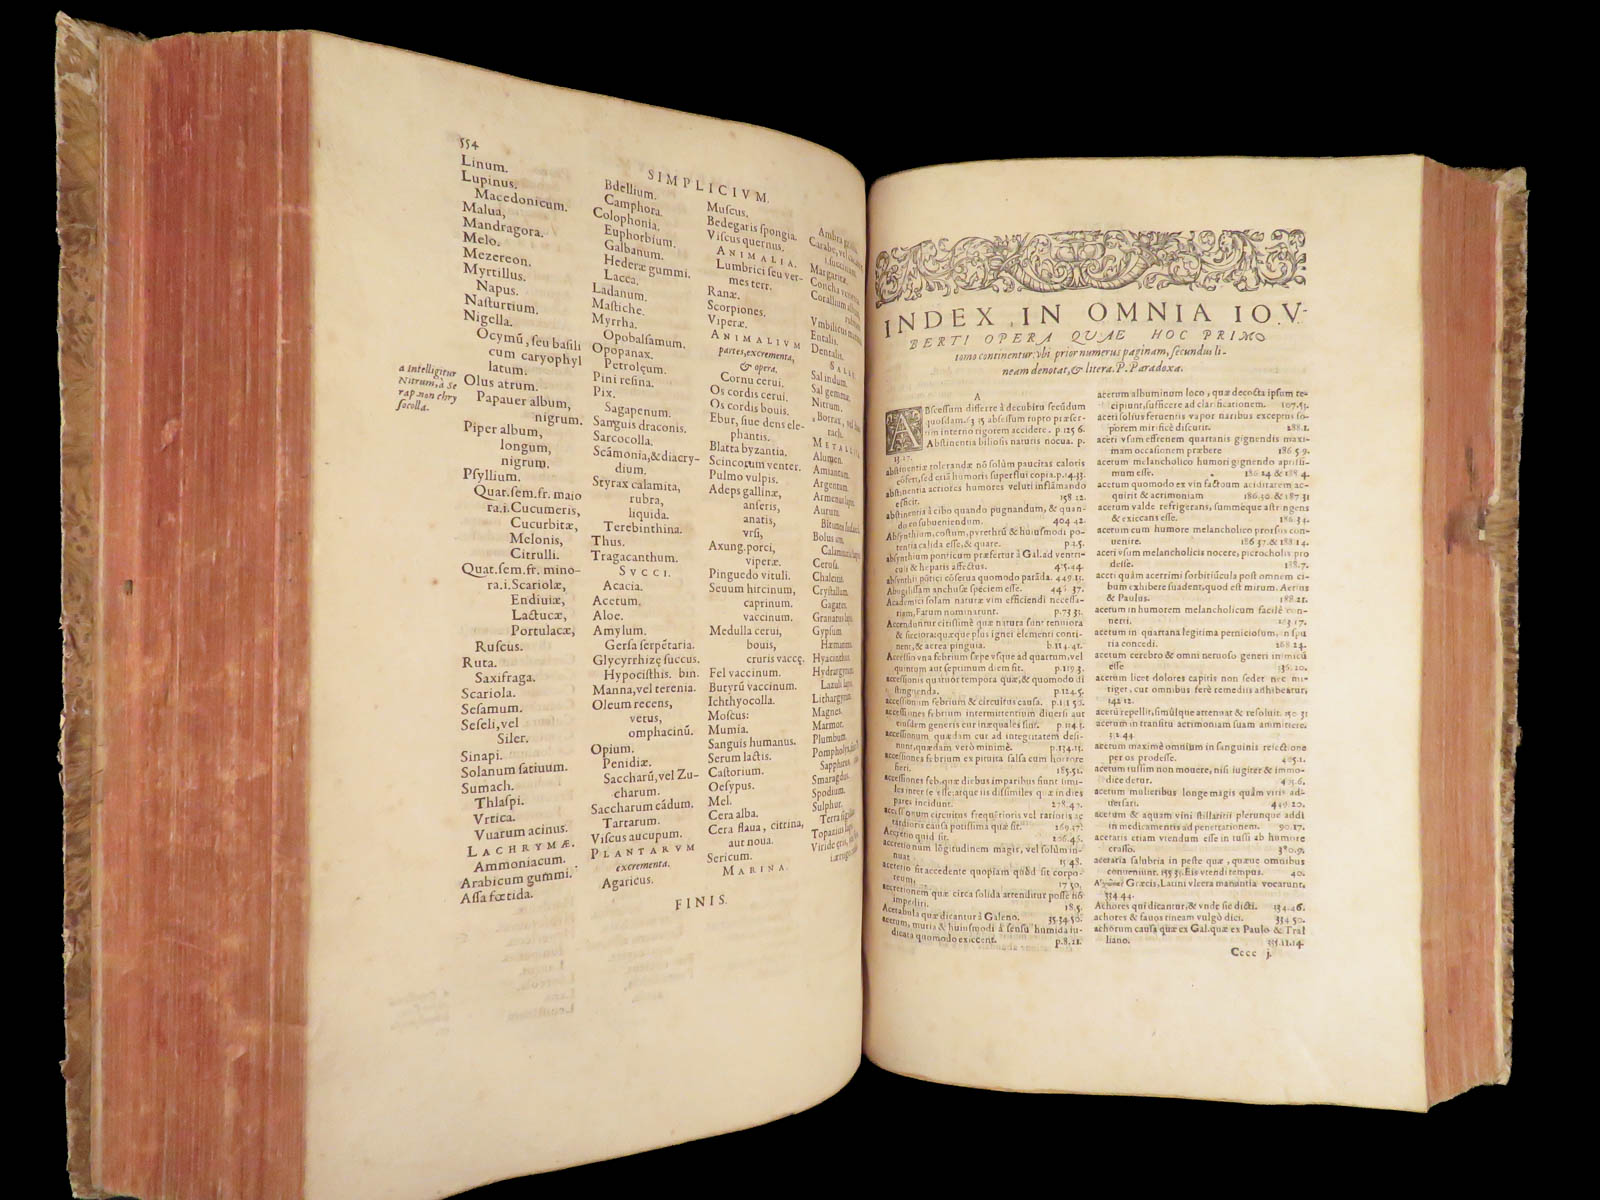 554
SIMPLICIVM.
Linum.
Lupinus.
Macedonicum.
Malua,
Mandragora.
Melo.
Mezereon.
Myrtillus.
Napus.
Naſturtium.
Nigella.
Ocymū, ſeu baſili
cum caryophyl
latum.
Olus atrum.
Papauer album,
nigrum.
Piper album,
longum,
nigrum.
Pſyllium.
Quat.ſem.fr. maio
ra.i.Cucumeris,
Cucurbitæ,
Melonis,
Citrulli.
Quat.ſem.fr. mino-
ra.i.Scariolæ,
Endiuiæ,
Lactucæ,
Portulacæ,
Ruſcus.
Ruta.
Saxifraga.
Scariola.
Seſamum.
Seſeli,vel
Siler.
Sinapi.
Solanum ſatiuum.
Sumach.
Thlaſpi.
Vrtica.
Vuarum acinus.
LACHRYMÆ.
Ammoniacum.
Arabicum gummi.
Aſſa fœtida.
a Intelligitur
Nitrum, à Se
rap.non chry
ſocolla.
Bdellium.
Camphora.
Colophonia.
Euphorbium.
Galbanum.
Hederæ gummi.
Lacca.
Ladanum.
Maſtiche.
Myrrha.
Opobalſamum.
Opopanax.
Petroleum.
Pini reſina.
Pix.
Sagapenum.
Sanguis draconis.
Sarcocolla.
Scāmonia,&diacry-
dium.
Styrax calamita,
rubra,
liquida.
Terebinthina.
Thus.
Tragacanthum.
SVCCI.
Acacia.
Acetum.
Aloe.
Amylum.
Gerſa ſerpētaria.
Glycyrrhizę ſuccus.
Hypociſthis. bin.
Manna,vel terenia.
Oleum recens,
vetus,
omphacinū.
Opium.
Penidiæ.
Saccharū, vel Zu-
charum.
Saccharum cādum.
Tartarum.
Viſcus aucupum.
PLANTARVM
excrementa.
Agaricus.
Muſcus.
Bedegaris ſpongia.
Viſcus quernus.
ANIMALIA.
Lumbrici ſeu ver-
mes terr.
Ranæ.
Scorpiones.
Viperæ.
ANIMALIVM
partes,excrementa,
& opera.
Cornu cerui.
Os cordis cerui.
Os cordis bouis.
Ebur, ſiue dens ele-
phantis.
Blatta byzantia.
Scincorum venter.
Pulmo vulpis.
Adeps gallinæ,
anſeris,
anatis,
vrſi,
Axung.porci,
viperæ.
Pinguedo vituli.
Seuum hircinum,
caprinum.
vaccinum.
Medulla cerui,
bouis,
cruris vaccę.
Fel vaccinum.
Butyrū vaccinum.
Ichthyocolla.
Moſcus:
Mumia.
Sanguis humanus.
Serum lactis.
Caſtorium.
Oeſypus.
Mel.
Cera alba.
Cera flaua, citrina,
aut noua.
Sericum.
MARINA.
Margarita.
Entalis.
Dentalis.
SALES.
Sal indum.
Sal gemma.
Nitrum.
METALLICA
Alumen.
Amiantum.
Argentum.
Aurum.
Ceruſa.
Chalcitis.
Cryſtallum.
Gagates.
Gypſum.
Magnes.
Marmor.
Plumbum.
Smaragdus.
Spodium.
Sulphur.
FINIS.
INDEX IN OMNIA IOV-
BERTI OPERA QVAE HOC PRIMO
tomo continentur: vbi prior numerus paginam, ſecundus li-
neam denotat, & litera. P. Paradoxa.
A
ABſceſſum differre à decubitu ſecūdum
quoſdam. 635 abſeſſum rupto præſer-
tim interno rigorem accidere. p.125 6.
Abſtinentia bilioſis naturis nocua. p.
13.17.
abſtinentiæ tolerandæ nō ſolùm paucitas caloris
cōfert, ſed etiā humoris ſuperflui copia.p.14.33.
abſtinentia acriores humores veluti inflāmando
efficit. 158 12.
abſtinentia à cibo quando pugnandum, & quan-
do ei ſubueniendum. 404 42.
Abſynthium, coſtum, pyrethrū & huiuſmodi po-
tentia calida eſſe, & quare. p 2.5.
abſynthium ponticum præfertur à Gal.ad ventri-
culi & hepatis affectus. 45.44.
abſynthii pōtici cōſerua quomodo parāda. 449.13.
Abugiſſam anchuſæ ſpeciem eſſe. 441 37.
Academici ſolam naturæ vim efficiendi neceſſa-
riam, Fatum nominarunt. p.73 31.
Accenduntur citiſſimè quæ natura ſunt tenuiora
& ſicciora: quæque plus ignei elementi conti-
nent, & aerea pinguia. b.114.41.
Acceſſio vna febrium ſæpe vſque ad quartum, vel
quintum aut ſeptimum diem ſit. p.119.3.
acceſſionis quatuor tempora quæ, & quomodo di
ſtinguenda. p.124.5.
acceſſionum febrium & circuitus cauſa. p.115 50.
acceſſiones febrium intermittentium diuerſi aut
eiuſdem generis cur inæquales ſint. p 114.1.
acceſſionum quædam cur ad integritatem deſi-
nunt, quædam verò minimè. p.134.15.
acceſſionis febrium ex pituita ſalſa cum horrore
fieri. 185.51.
acceſſiones feb.quæ diebus imparibus fiunt ſimi-
les inter ſe eſſe: atque iis diſſimiles quæ in dies
pares incidunt. 278.42.
Accretio quid ſit. 206.46.
acetum, muria & huiuſmodi à ſenſu humida iu-
dicata quomodo exiccent. p.8.21.
acerum albuminum loco, quæ decocta ipſum re-
cipiunt, ſufficere ad clarificationem. 107.43.
aceri ſolius feruentis vapor naribus exceptus ſo-
porem mirificè diſcutit. 288.1.
aceti vſum eſſrenem quartanis gignendis maxi-
mam occaſionem præbere 186 5.9.
acetum melancholico humori gignendo aptiſſi-
mum eſſe. 186 24 & 188 4.
acetum quomodo ex vin factoum aciditatem ac-
quirit & acrimoniam 186.30. & 187 31
acetum valde refrigerans, ſummèque aſtringens
& exiccans eſſe. 186.34.
acetum cum humore melancholico prorſus con-
uenire. 186 37.& 188 14.
aceti vſum melancholicis nocere, picrocholis pro
deſſe. 188.7.
aceti quàm acerrimi ſorbitiūcula poſt omnem ci-
bum exhibere ſuadent, quod eſt mirum. Aetius
& Paulus. 188.21.
acetum in humorem melancholicum facilè con-
uerti 263.17.
acetum in quartana legitima perniciosum, in ſpu
ria concedi. 268 24.
acetum cerebro & omni neruoſo generi inimicū
eſſe 336.20.
acetum licet dolores capitis non ſedet nec mi-
tiget, cur omnibus ferè remediis adhibeatur,
142 12.
acetū repellit, ſimùlque attenuat & reſoluit. 150 31
acetum in tranſitu acrimoniam ſuam amittere.
312 44.
acetum maximè omnium in ſanguinis reiectione
per os prodeſſe. 405.1.
acetum tuſſim non mouere, niſi iugiter & immo-
dicè detur. 405.6.
acetum mulieribus longe magis quàm viris ad-
uerſari. 449.20.
acetum & aquam vini ſtillatitii plerunque addi
in medicamentis ad penetrationem. 90.17.
acetaris etiam vtendum eſſe in tuſſi ab humore
craſſo. 380.9.
acetaria ſalubria in peſte quæ, quæue omnibus
conueniunt. 155 31. Eis vtendi tempus. 40.
Græcis, Latini vlcera manantia vocarunt,
334 44.
Achores qui dicantur, & vnde ſic dicti. 334.46.
achores & fauos tineam vulgò dici. 334 50.
achorum cauſa quæ ex Gal.quæ ex Paulo & Tral
liano. 335.11.14.
Cccc j.